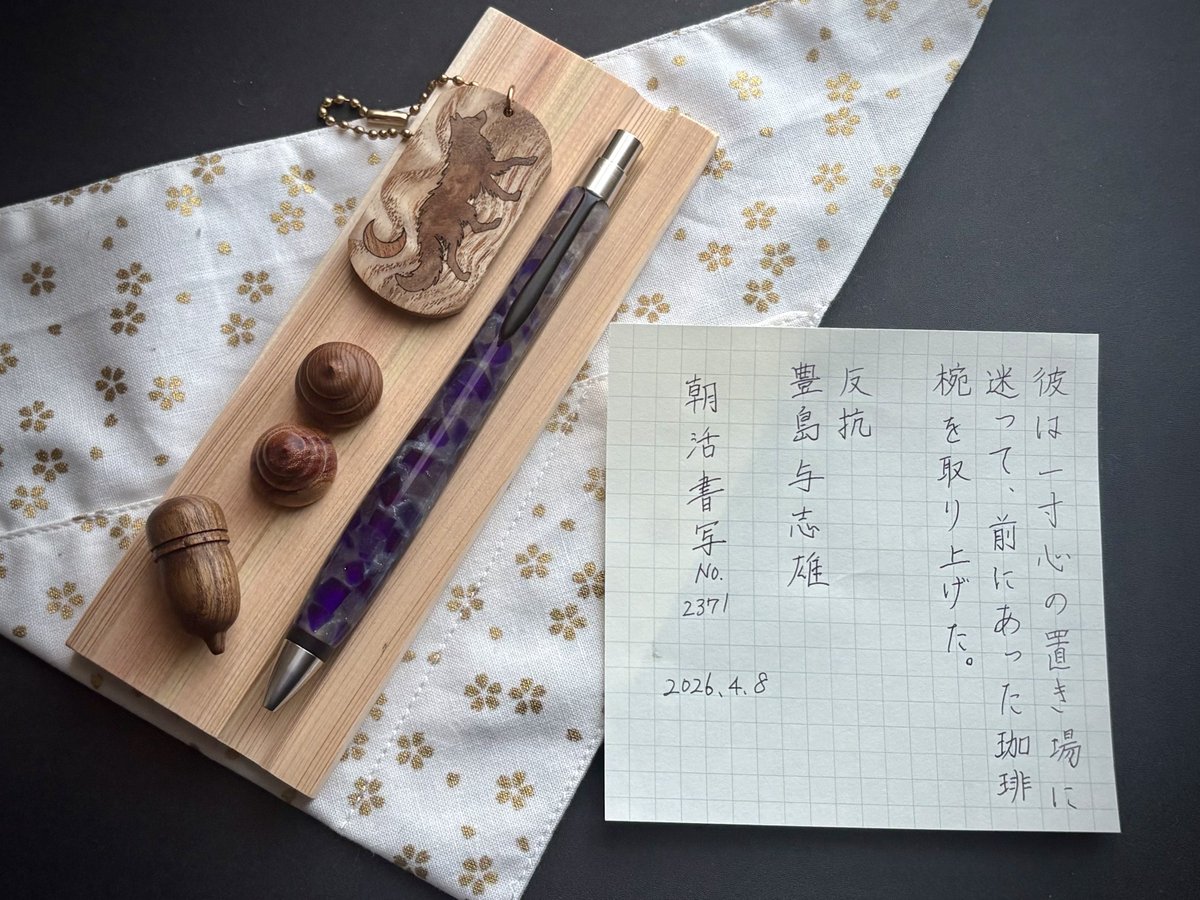 彼は一寸心の置き場に
迷って、前にあった珈琲
椀を取り上げた。
反抗
豊島与志雄
朝活書写
No.
2371
2026.4.8